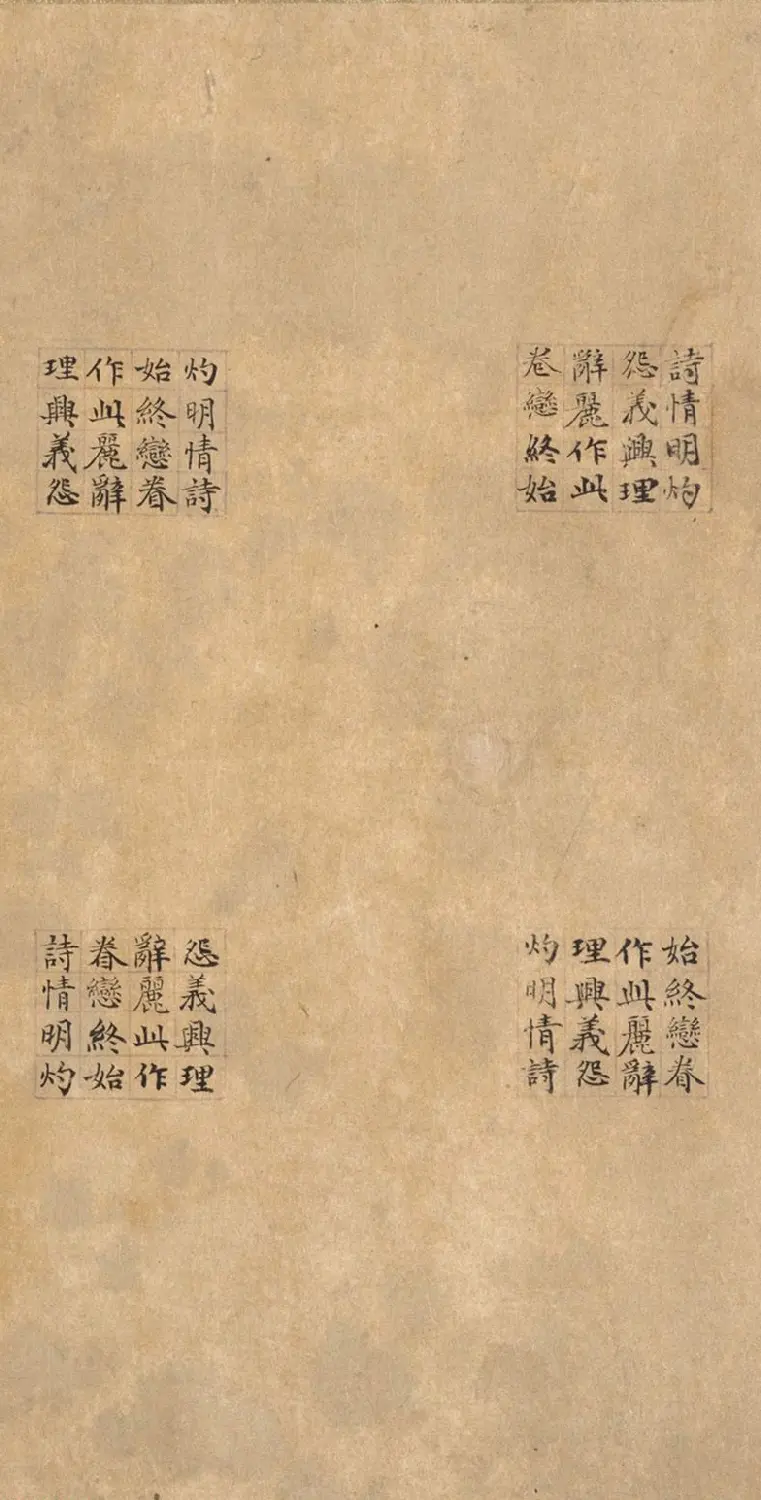 詩情明灼
怨義興理
辭麗作此
卷戀終始
灼明情詩
始終戀眷
作此麗辭
理興義怨
始終戀眷
作此麗辭
理興義怨
灼明情詩
怨義興理
辭麗此作
眷戀終始
詩情明灼